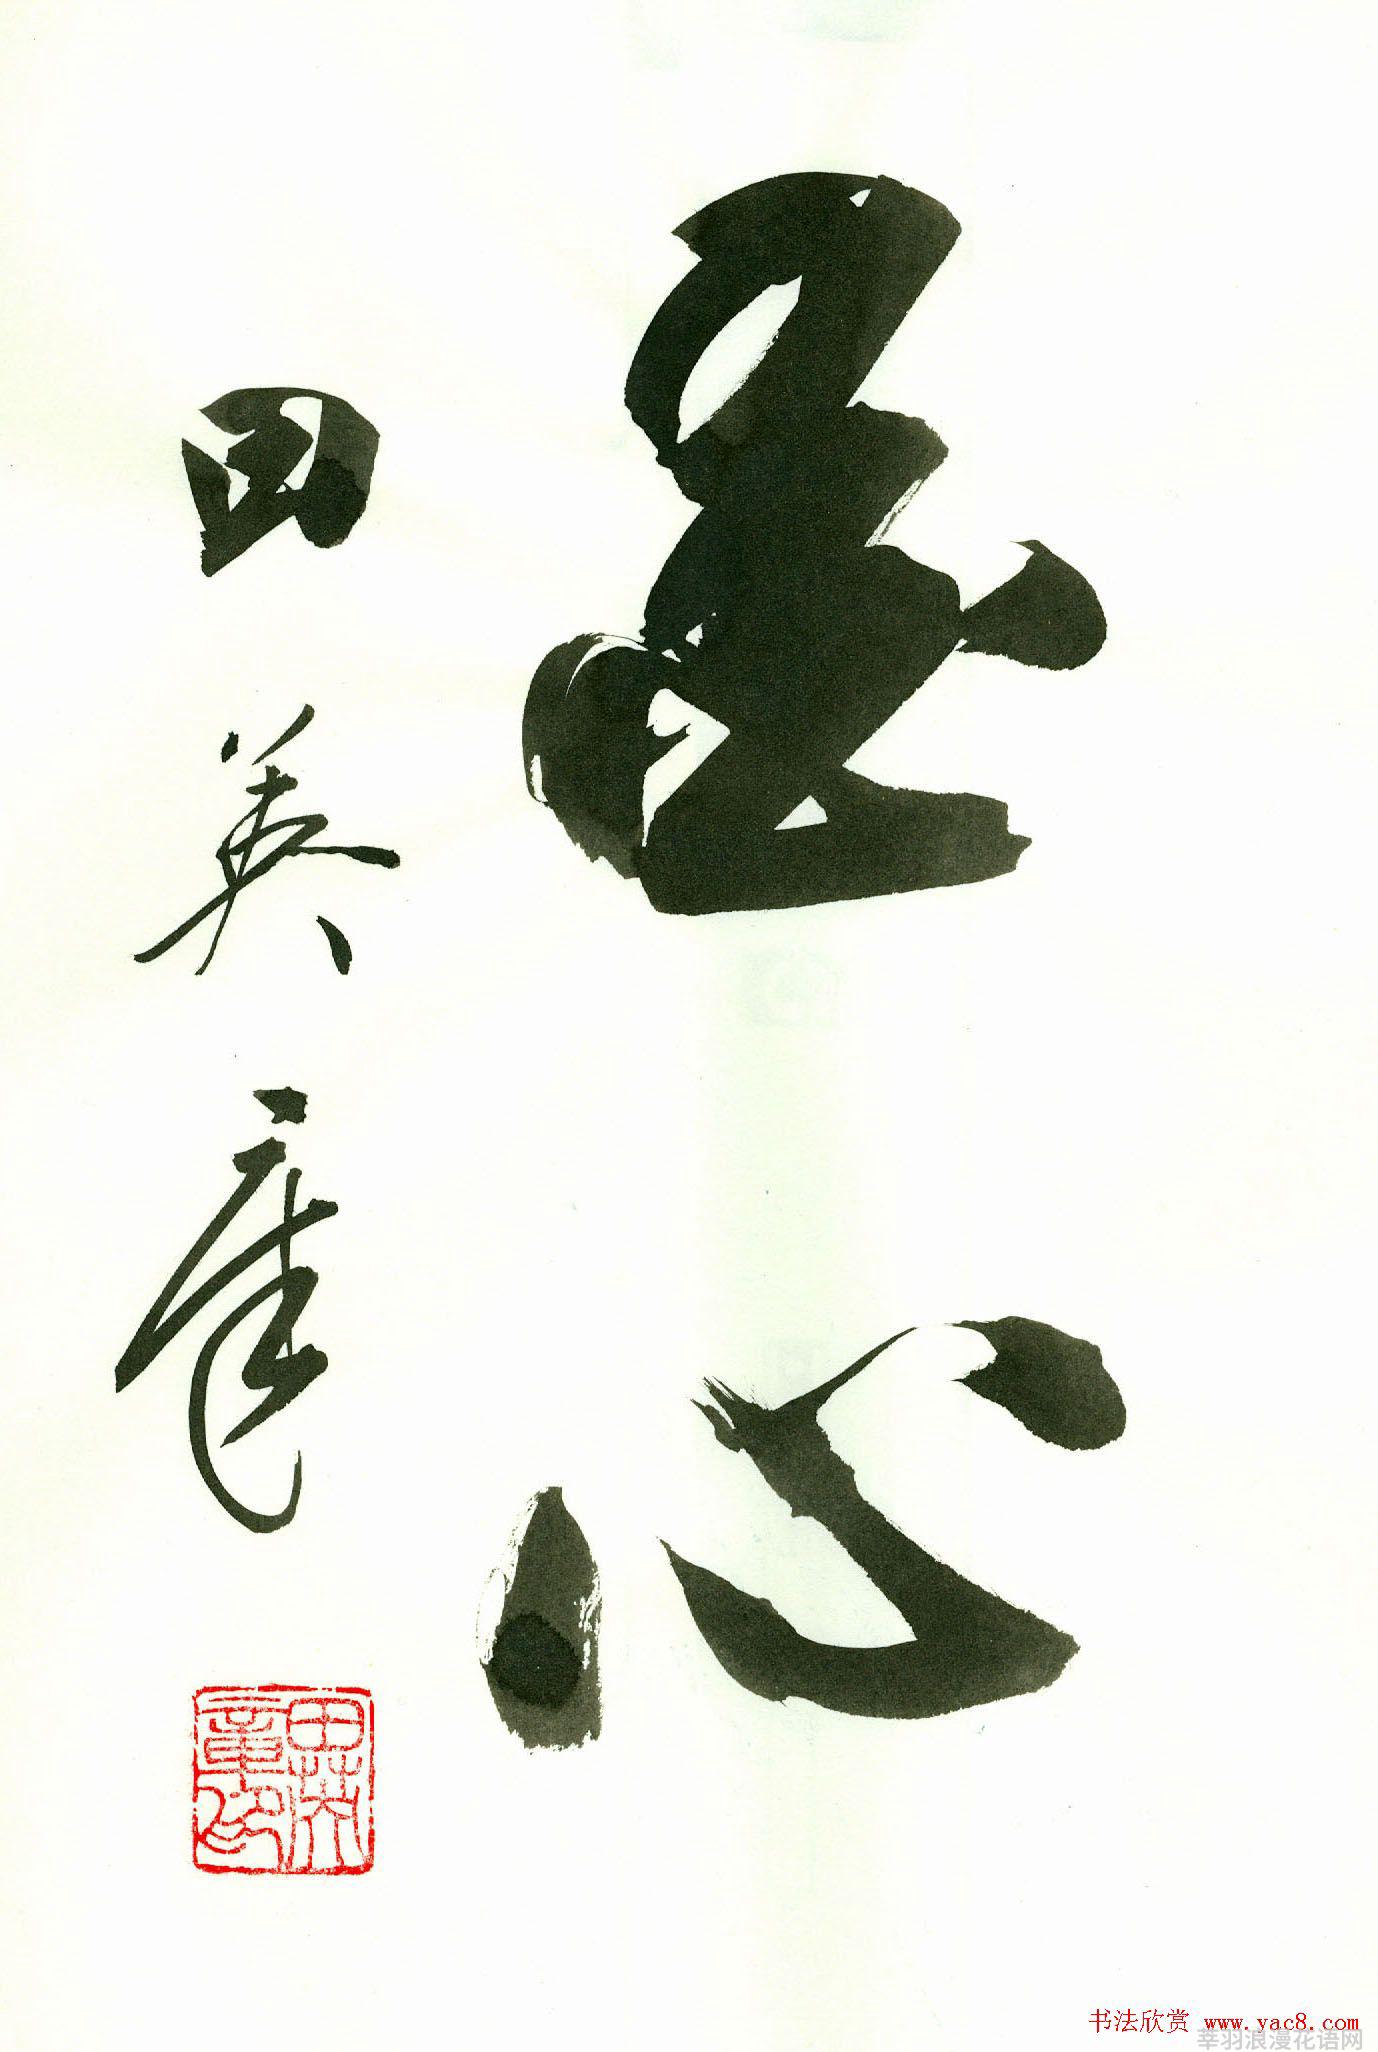 心
田英章
田英章印
书法欣赏 www.yac8.com
莘羽浪漫花语网